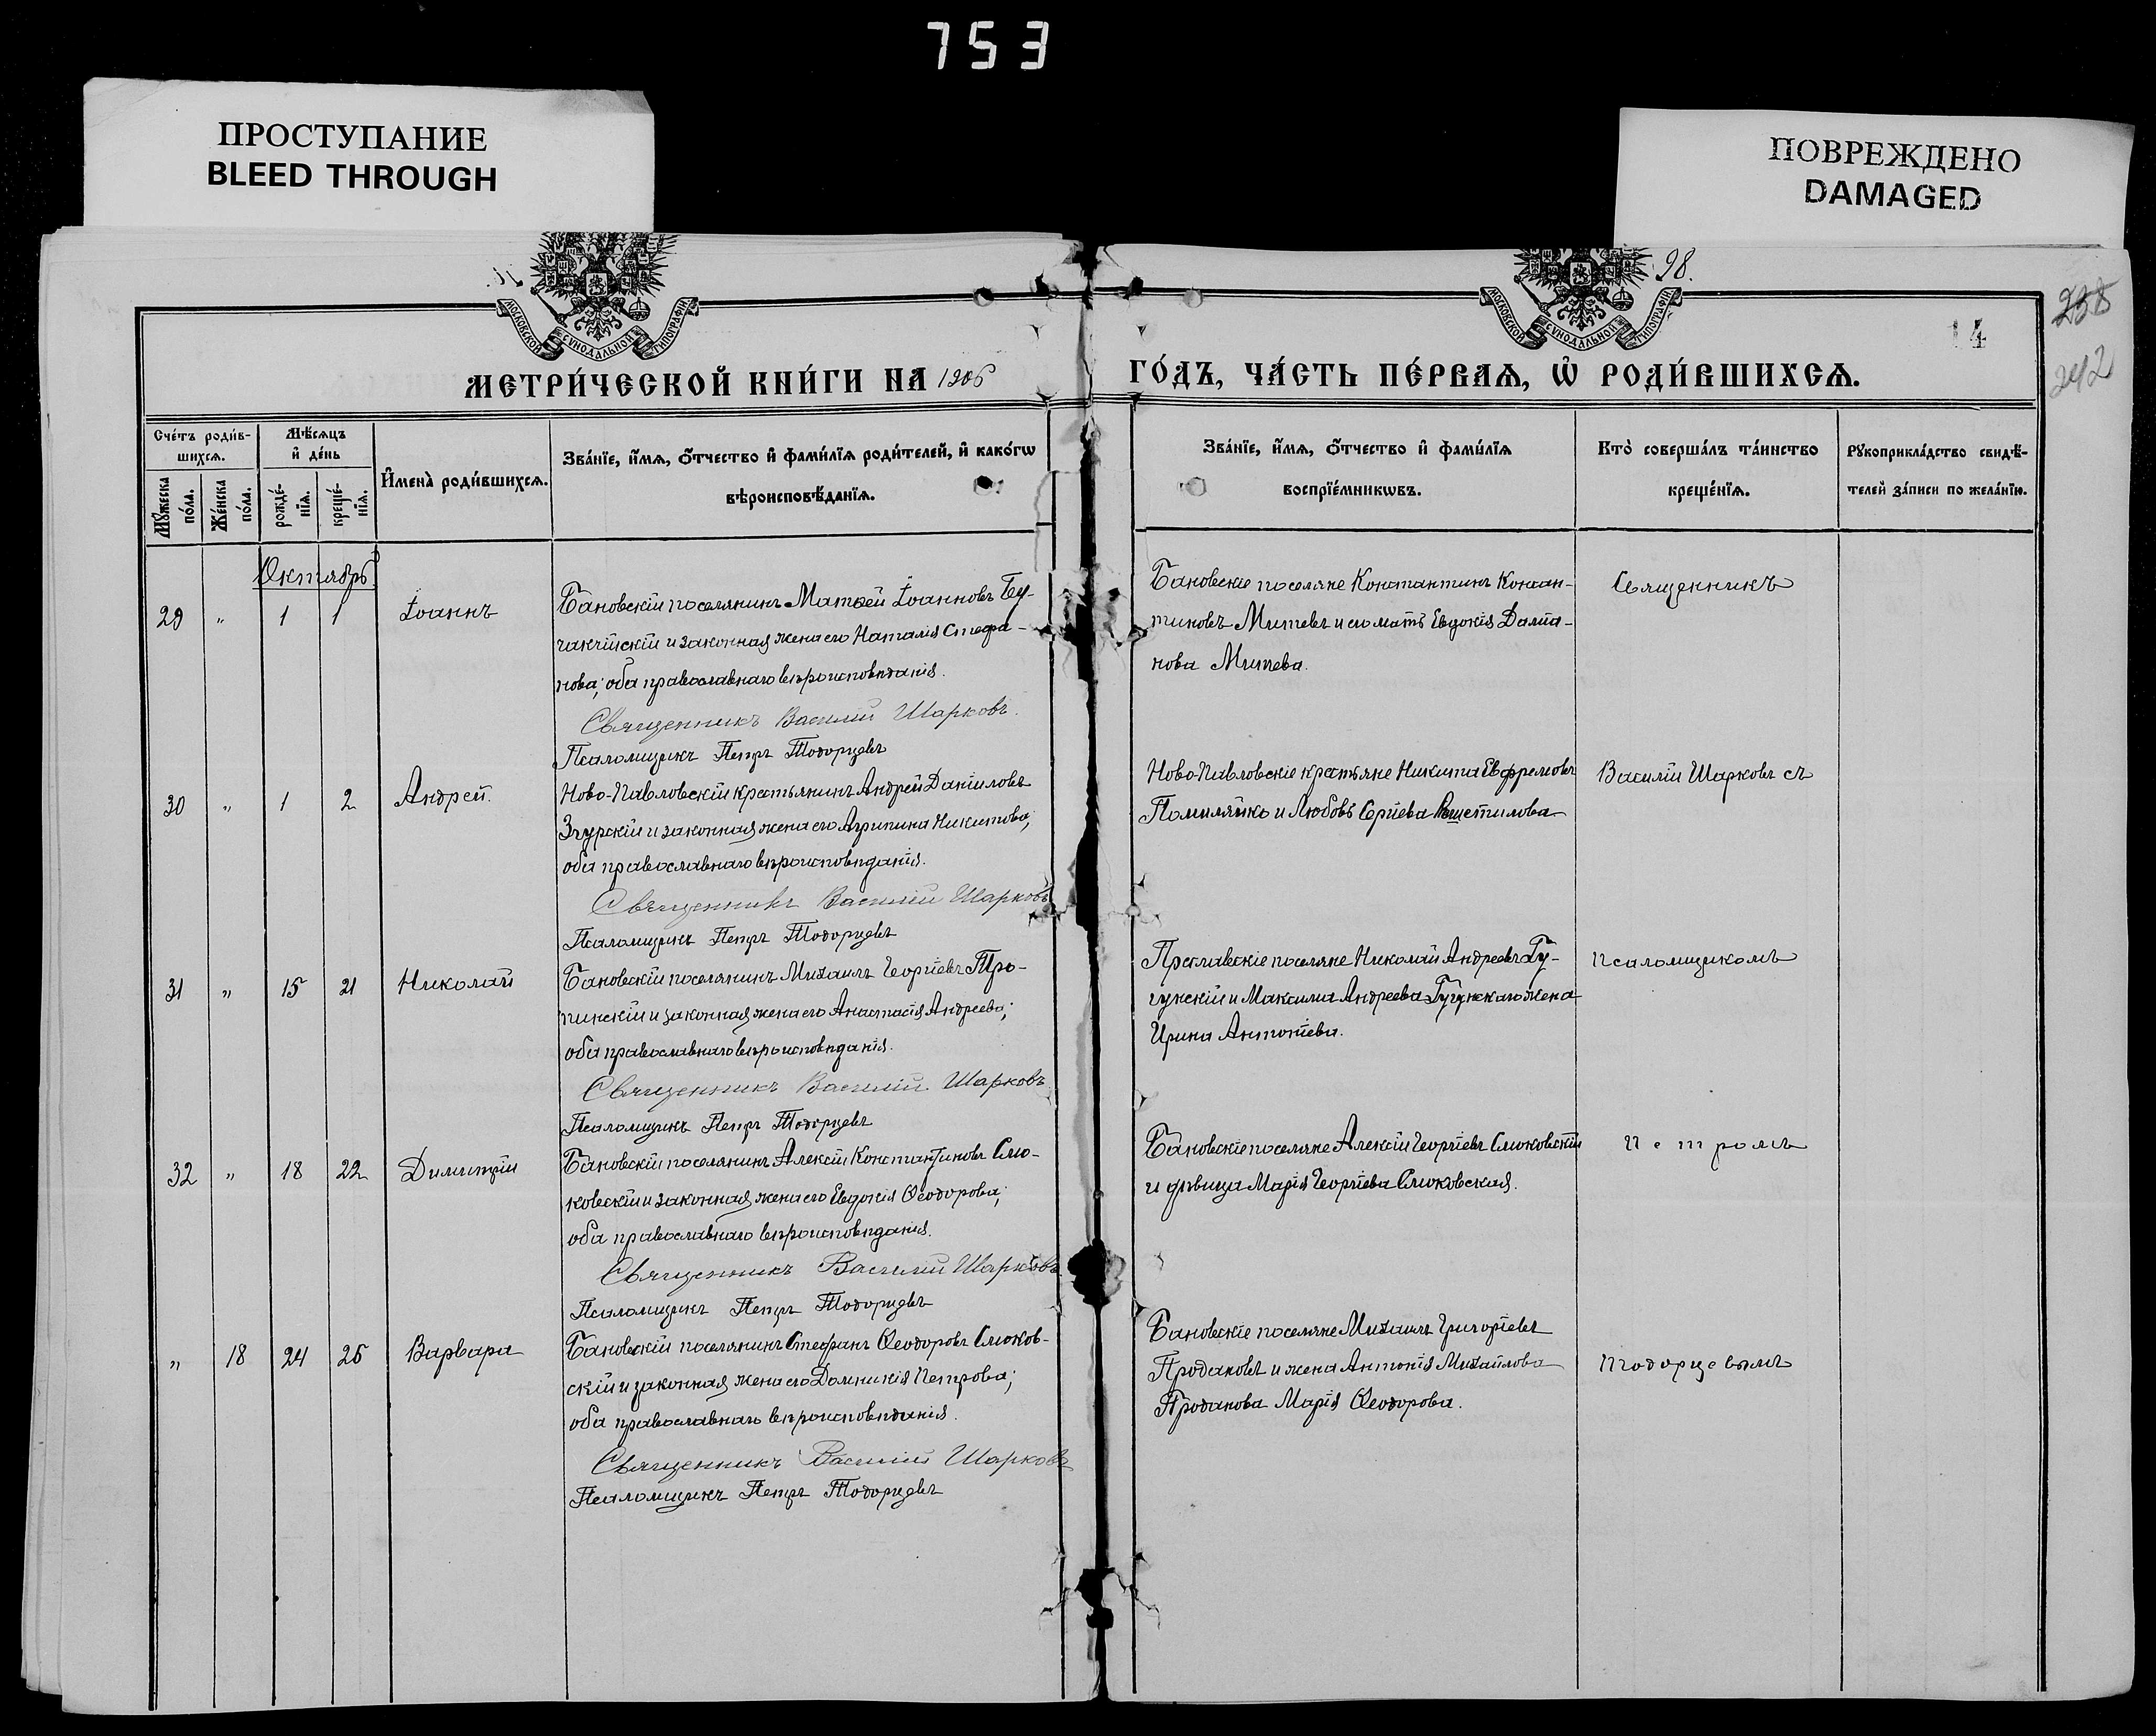 753
ПРОСТУПАНИЕ
BLEED THROUGH
ПОВРЕЖДЕНО
DAMAGED
МОСКОВСКОЙ СѴНОДАЛЬНОЙ ТИПОГРАФІИ
МОСКОВСКОЙ СѴНОДАЛЬНОЙ ТИПОГРАФІИ
98.
238
14
242
МЕТРИ́ЧЕСКОЙ КНИ́ГИ НА 1906
ГО́ДЪ, ЧА́СТЬ ПЕ́РВАѦ, Ѡ҆ РОДИ́ВШИХСѦ.
Сче́тъ роди́в-
шихсѧ.
Мꙋ́жеска по́ла.
Же́нска по́ла.
Мѣ́сѧцъ
и҆ де́нь
рожде́-нїѧ.
креще́-нїѧ.
И҆мена̀ роди́вшихсѧ.
Зва́нїе, и҆́мѧ, ѻ҆́тчество и҆ фами́лїѧ роди́телей, и҆ како́гѡ
вѣроисповѣ́данїѧ.
Зва́нїе, и҆́мѧ, ѻ҆́тчество и҆ фами́лїѧ
воспрїе́мникѡвъ.
Кто̀ соверша́лъ та́инство
креще́нїѧ.
Рꙋкоприкла́дство свидѣ́-
телей за́писи по жела́нїю.
Октябрь
29 „ 1 1 Іоаннъ
Бановскій поселянинъ Матѳей Іоанновъ Бу-
чакчійскій и законная жена его Наталія Стефа-
нова; оба православнаго вѣроисповѣданія.
Священникъ Василій Шарковъ.
Псаломщикъ Петръ Тодорцевъ
Бановскіе поселяне Константинъ Констан-
тиновъ Митевъ и его мать Евдокія Даміа-
нова Митева.
Священникъ
30 „ 1 2 Андрей.
Ново-Павловскій крестьянинъ Андрей Даніиловъ
Згурскій и законная жена его Агрипина Никитова;
оба православнаго вѣроисповѣданія.
Священникъ Василій Шарковъ
Псаломщикъ Петръ Тодорцевъ
Ново-Павловскіе крестьяне Никита Евфремовъ
Помиляйко и Любовь Сергіева Решетилова
Василій Шарковъ съ
31 „ 15 21 Николай
Бановскій поселянинъ Михаилъ Георгіевъ Тро-
пинскій и законная жена его Анастасія Андреева;
оба православнаго вѣроисповѣданія.
Священникъ Василій Шарковъ
Псаломщикъ Петръ Тодорцевъ
Преславскіе поселяне Николай Андреевъ Гу-
гунскій и Максима Андреева Гугунскаго жена
Ирина Антоніева.
псаломщикомъ
32 „ 18 22 Димитрій
Бановскій поселянинъ Алексій Константиновъ Слю-
ковскій и законная жена его Евдокія Ѳеодорова;
оба православнаго вѣроисповѣданія.
Священникъ Василій Шарковъ
Псаломщикъ Петръ Тодорцевъ
Бановскіе поселяне Алексій Георгіевъ Слюковскій
и дѣвица Марія Георгіева Слюковская.
Петромъ
„ 18 24 25 Варвара
Бановскій поселянинъ Стефанъ Ѳеодоровъ Слюков-
скій и законная жена его Домникія Петрова;
оба православнаго вѣроисповѣданія.
Священникъ Василій Шарковъ
Псаломщикъ Петръ Тодорцевъ
Бановскіе поселяне Михаилъ Григоріевъ
Продановъ и жена Антонія Михайлова
Проданова Марія Ѳеодорова.
Тодорцевымъ